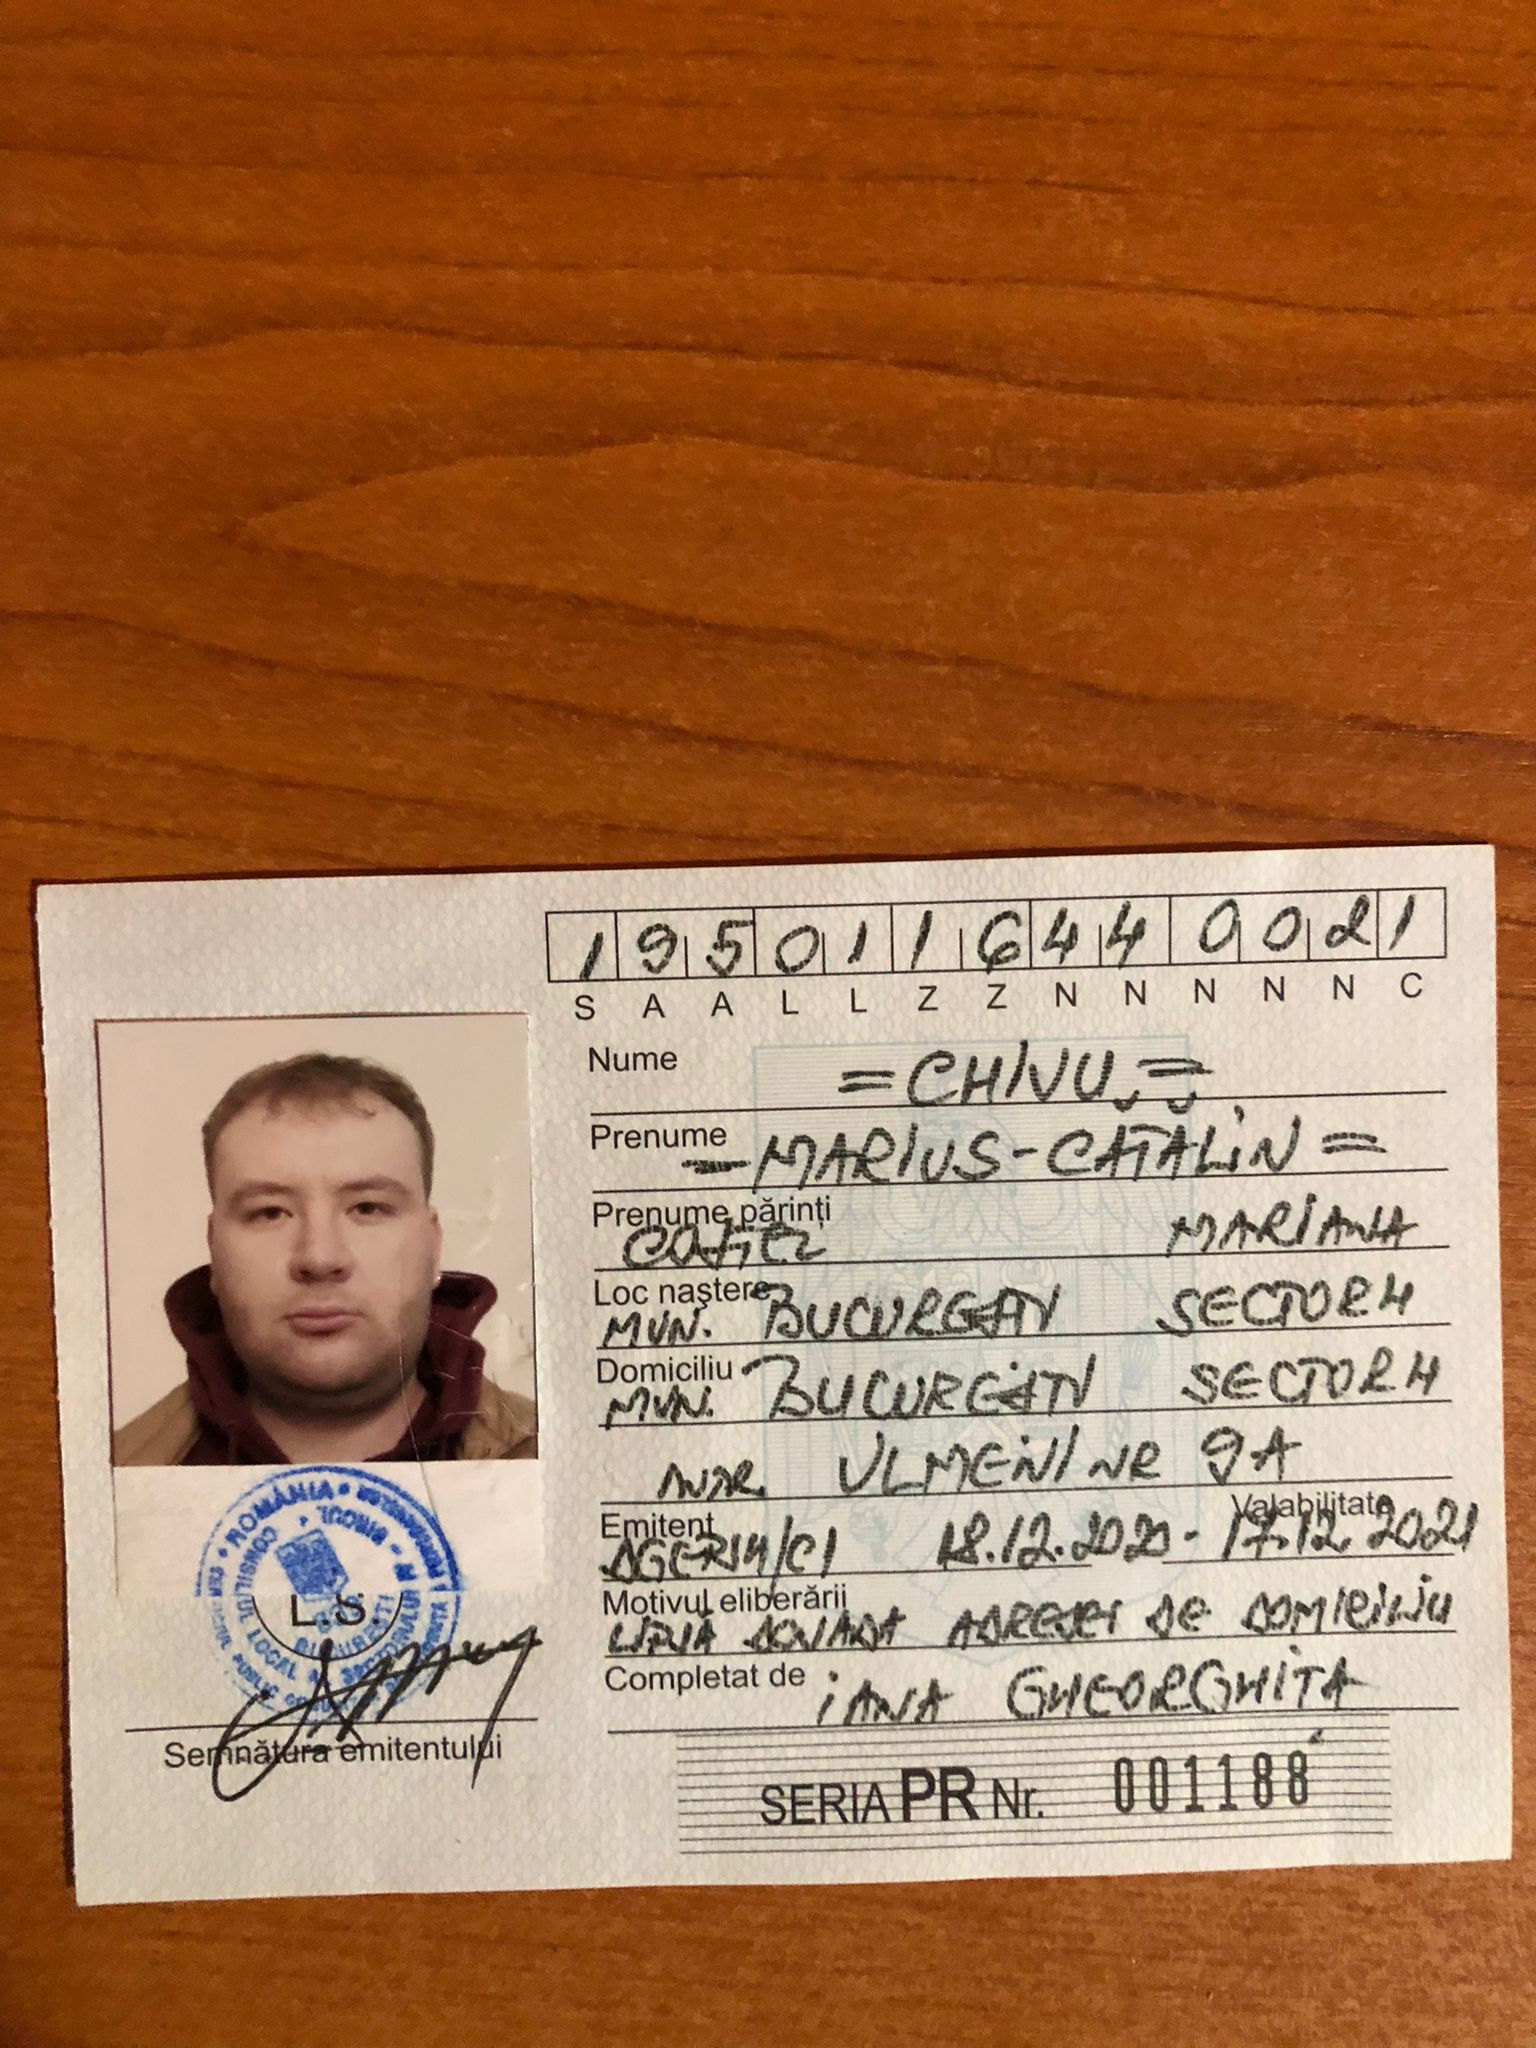 1 9 5 0 1 1 6 4 4 0 0 2 1
S A A L L Z Z N N N N N C
Nume = CHIVU =
Prenume = MARIUS-CĂTĂLIN =
Prenume părinți
COSTEL MARIANA
Loc naştere
MUN. BUCUREŞTI SECTOR 4
Domiciliu
MUN. BUCUREŞTI SECTOR 4
ULMENI NR 9A
Emitent Valabilitate
18.12.2020 - 17.12.2021
Motivul eliberării
LIPSĂ DOVADA ADRESEI DE DOMICILIU
Completat de IANA GHEORGHITA
ROMÂNIA
CONSILIUL LOCAL
L.S.
BUCUREŞTI
Semnătura emitentului
SERIA PR Nr. 001188